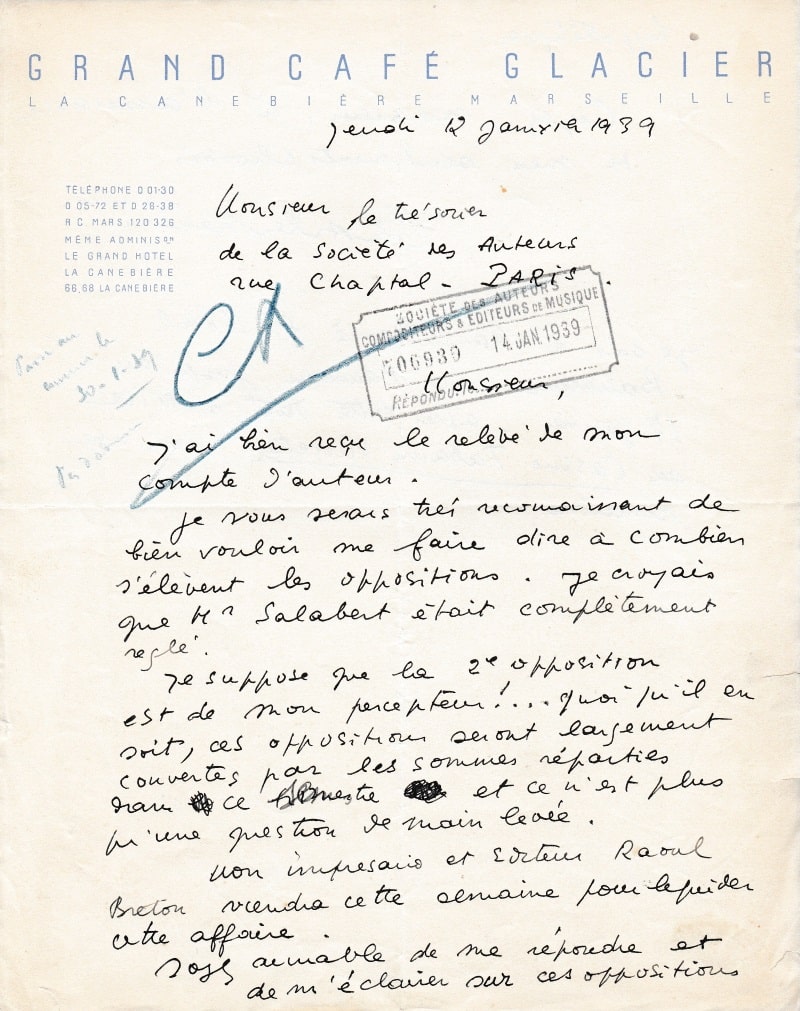 GRAND CAFÉ GLACIER
LA CANEBIÈRE MARSEILLE
Jeudi 12 Janvier 1939
TÉLÉPHONE D 01-30
D 05-72 ET D 26-38
R C MARS 120 326
MÊME ADMINISON
LE GRAND HOTEL
LA CANEBIÈRE
66,68 LA CANEBIÈRE
Monsieur le trésorier
de la Société des Auteurs
rue Chaptal - PARIS.
SOCIÉTÉ DES AUTEURS
COMPOSITEURS & EDITEURS DE MUSIQUE
706939 14 JAN. 1939
RÉPONDU
30-1-39
Monsieur,
J'ai bien reçu le relevé de mon
compte d'auteur.
Je vous serais très reconnaissant de
bien vouloir me faire dire à combien
s'élèvent les oppositions. Je croyais
que Mr Salabert était complètement
reglé.
Je suppose que la 2e opposition
est de mon percepteur!... quoi qu'il en
soit, ces oppositions seront largement
couvertes par les sommes réparties
dans ce et ce n'est plus
qu'une question de main levée.
Mon impresario et Editeur Raoul
Breton viendra cette semaine pour liquider
cette affaire.
Soyez aimable de me répondre et
de m'éclairer sur ces oppositions